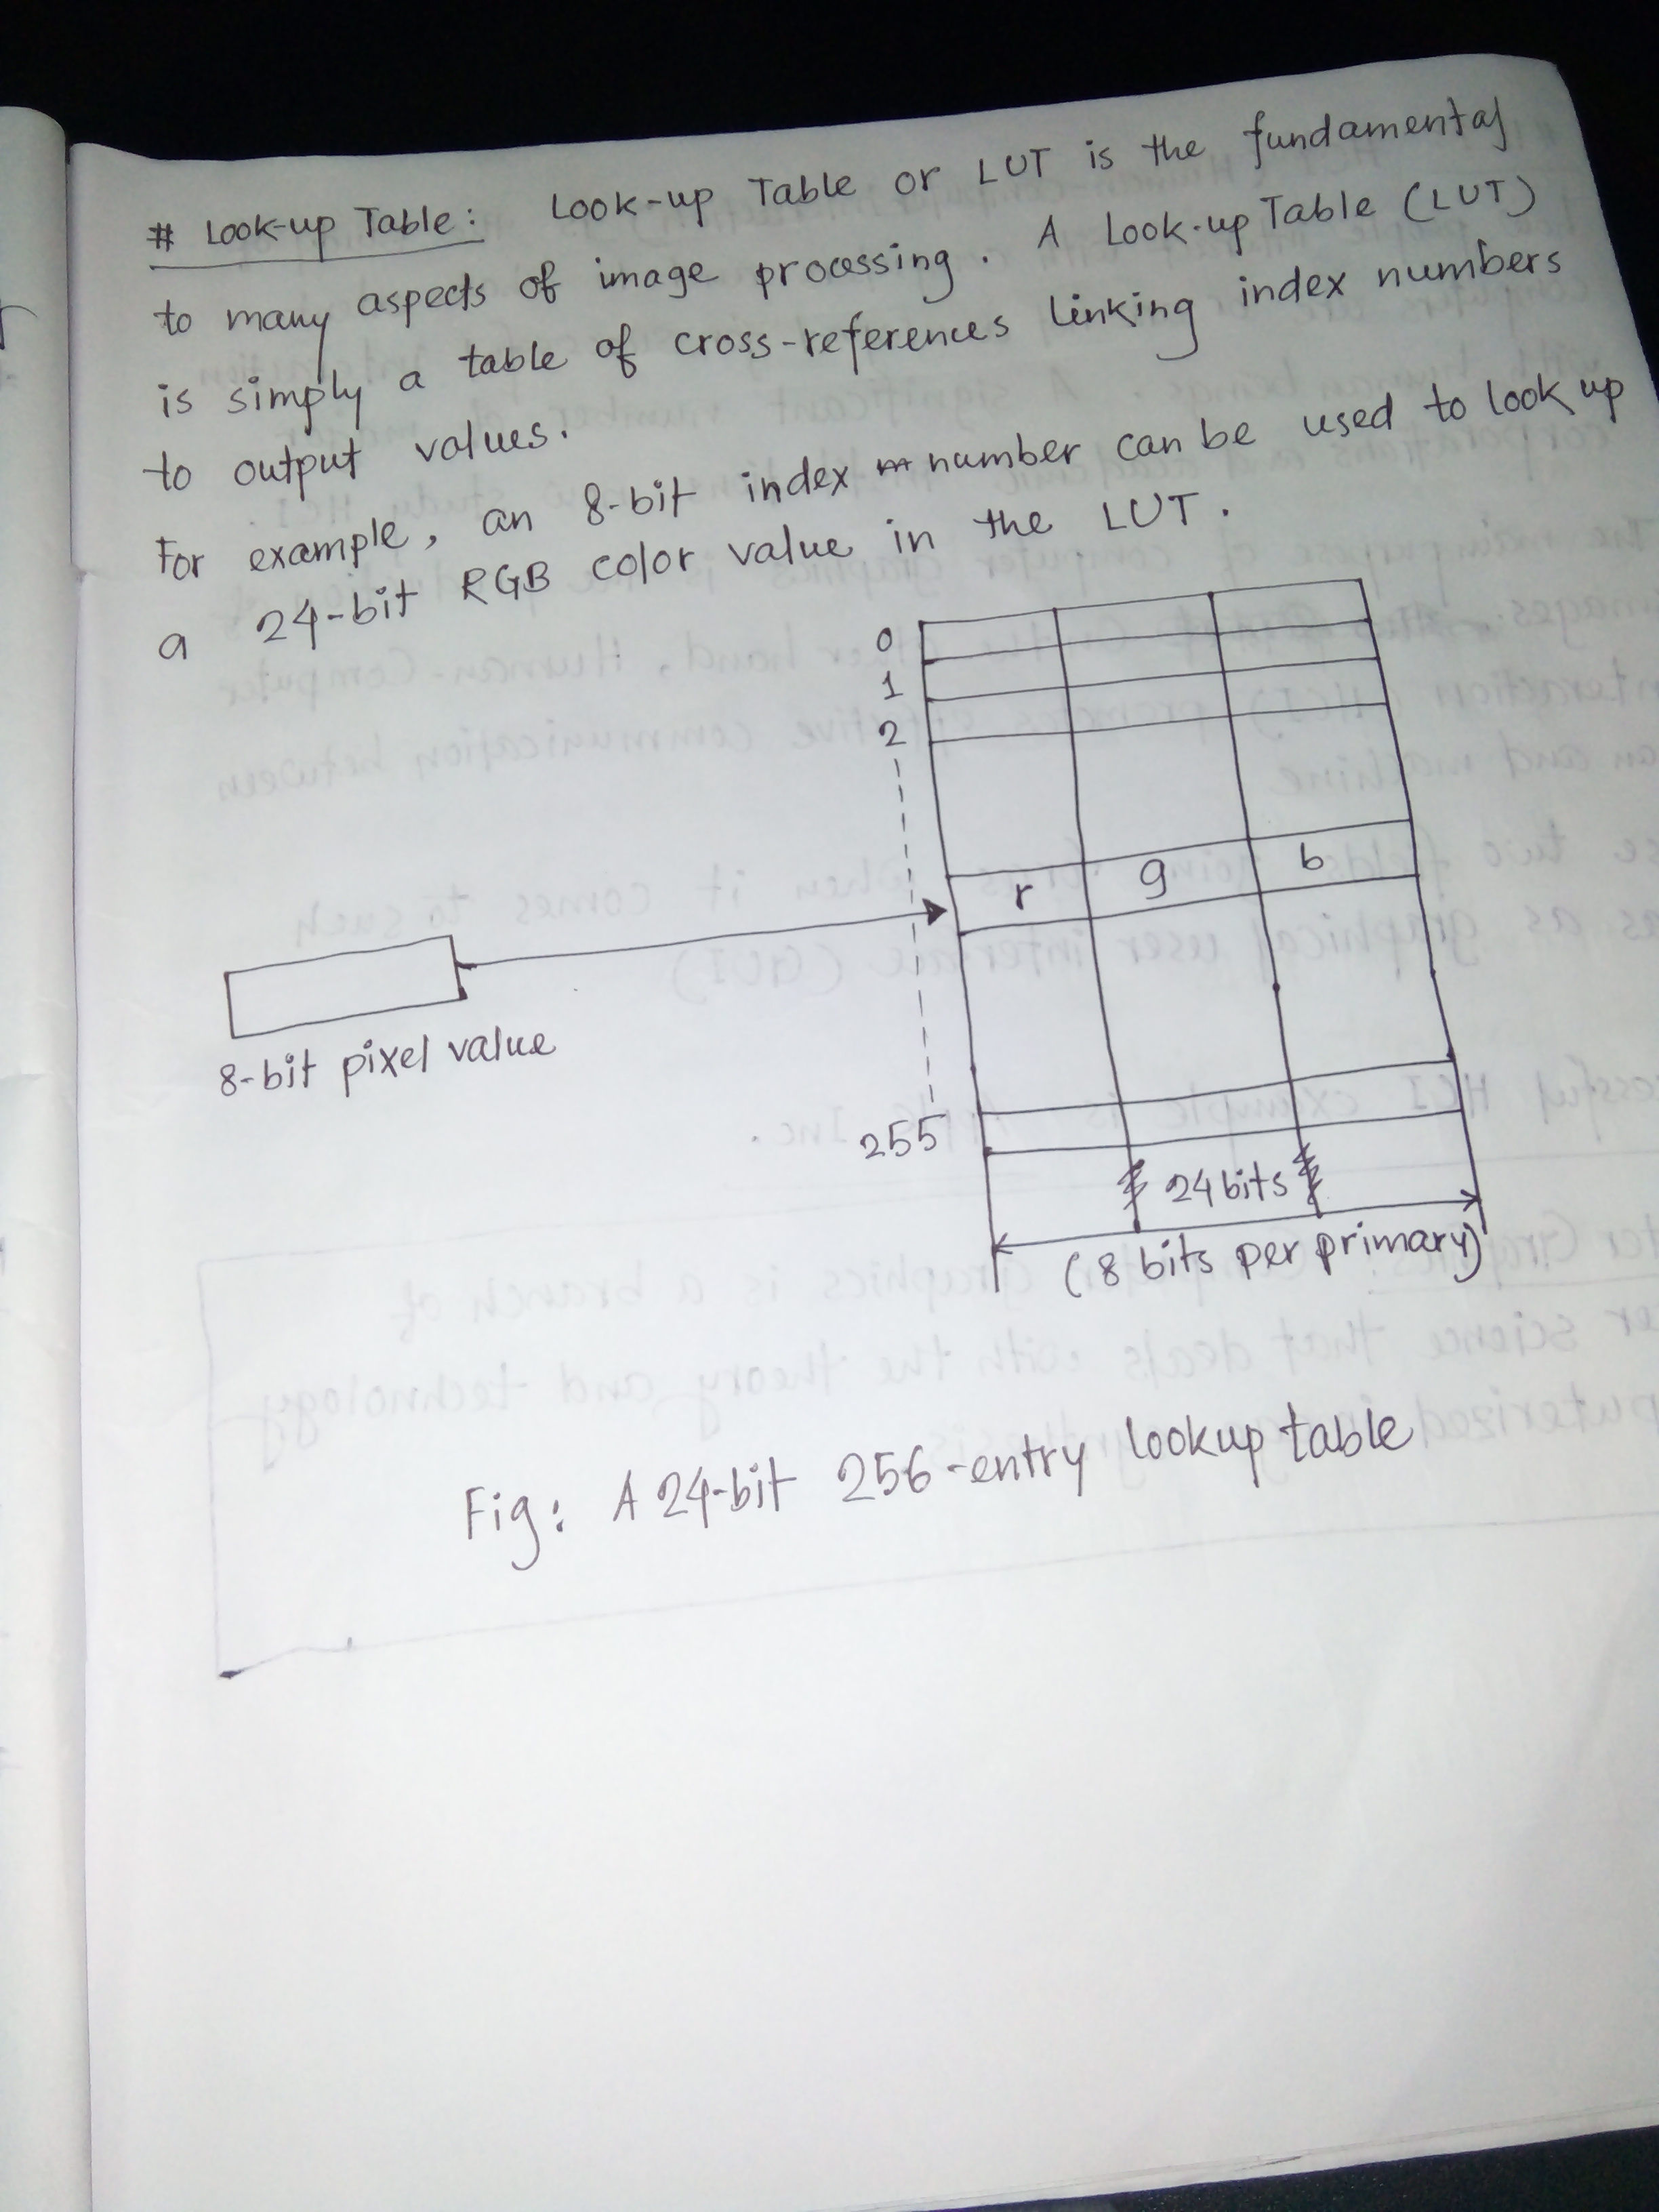 # Look-up Table: Look-up Table or LUT is the fundamental
to many aspects of image processing. A Look-up Table (LUT)
is simply a table of cross-references linking index numbers
to output values.
For example, an 8-bit index number can be used to look up
a 24-bit RGB color value in the LUT.
0
1
2
r g b
8-bit pixel value
255
24 bits
(8 bits per primary)
Fig: A 24-bit 256-entry lookup table